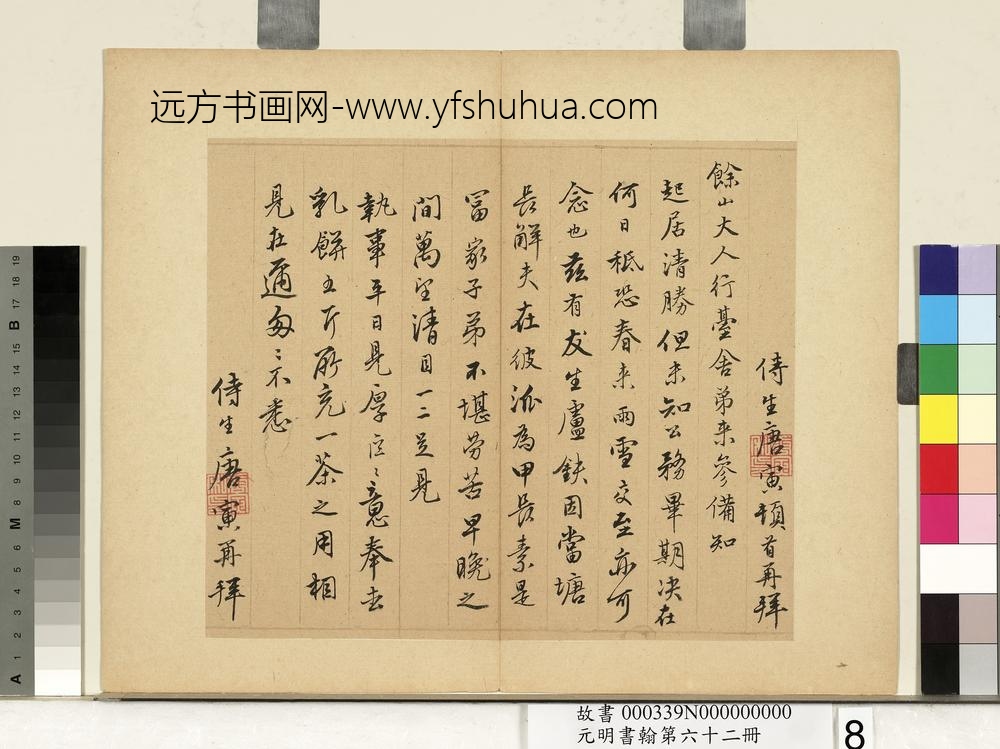 远方书画网-www.yfshuhua.com
侍生唐寅頓首再拜
餘山大人行臺舍弟来參備知
起居清勝但未知公務畢期决在
何日秪恐春来雨雪交至亦可
念也茲有友生盧鈇因當塘
長解夫在彼泒為甲長素是
冨家子弟不堪勞苦早晚之
間萬望清目一二足見
執事平日見厚區〻意奉去
乳餅五斤聊充一茶之用相
見在邇匆〻不悉
侍生唐寅再拜
故書 000339N000000000
元明書翰第六十二冊
8
A 1 2 3 4 5 6 M 8 9 10 11 12 13 14 15 B 17 18 19